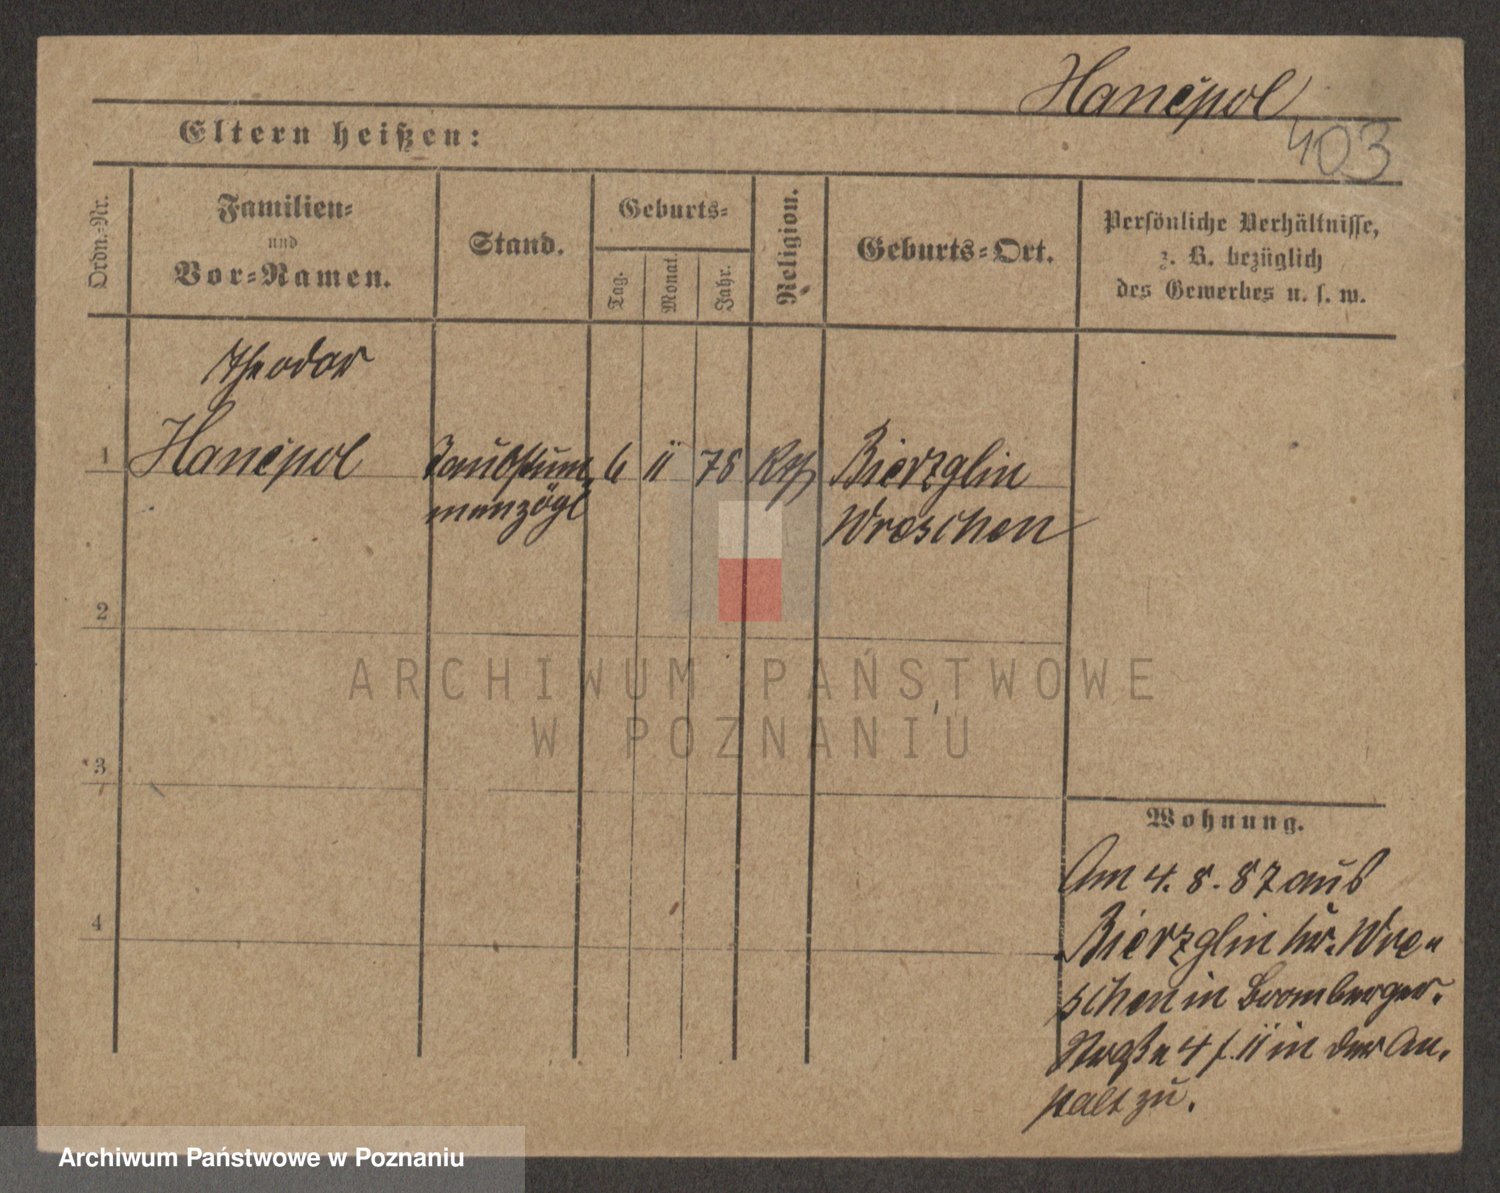 Hanćpol
403
Eltern heißen:
Ordn.-Nr.
Familien-
und
Vor-Namen.
Stand.
Geburts-
Tag.
Monat.
Jahr.
Religion.
Geburts-Ort.
Persönliche Verhältnisse,
z. B. bezüglich
des Gewerbes u. s. w.
Theodor
1 Hanćpol Taubstum- 6 11 78 Kth Bierzglin
menzögl Wreschen
2
3
4
Wohnung.
Am 4. 8. 87 aus
Bierzglin Kr. Wre-
schen in Bromberger-
Straße 4 f. II in der An-
stalt zu.
ARCHIWUM PAŃSTWOWE
W POZNANIU
Archiwum Państwowe w Poznaniu